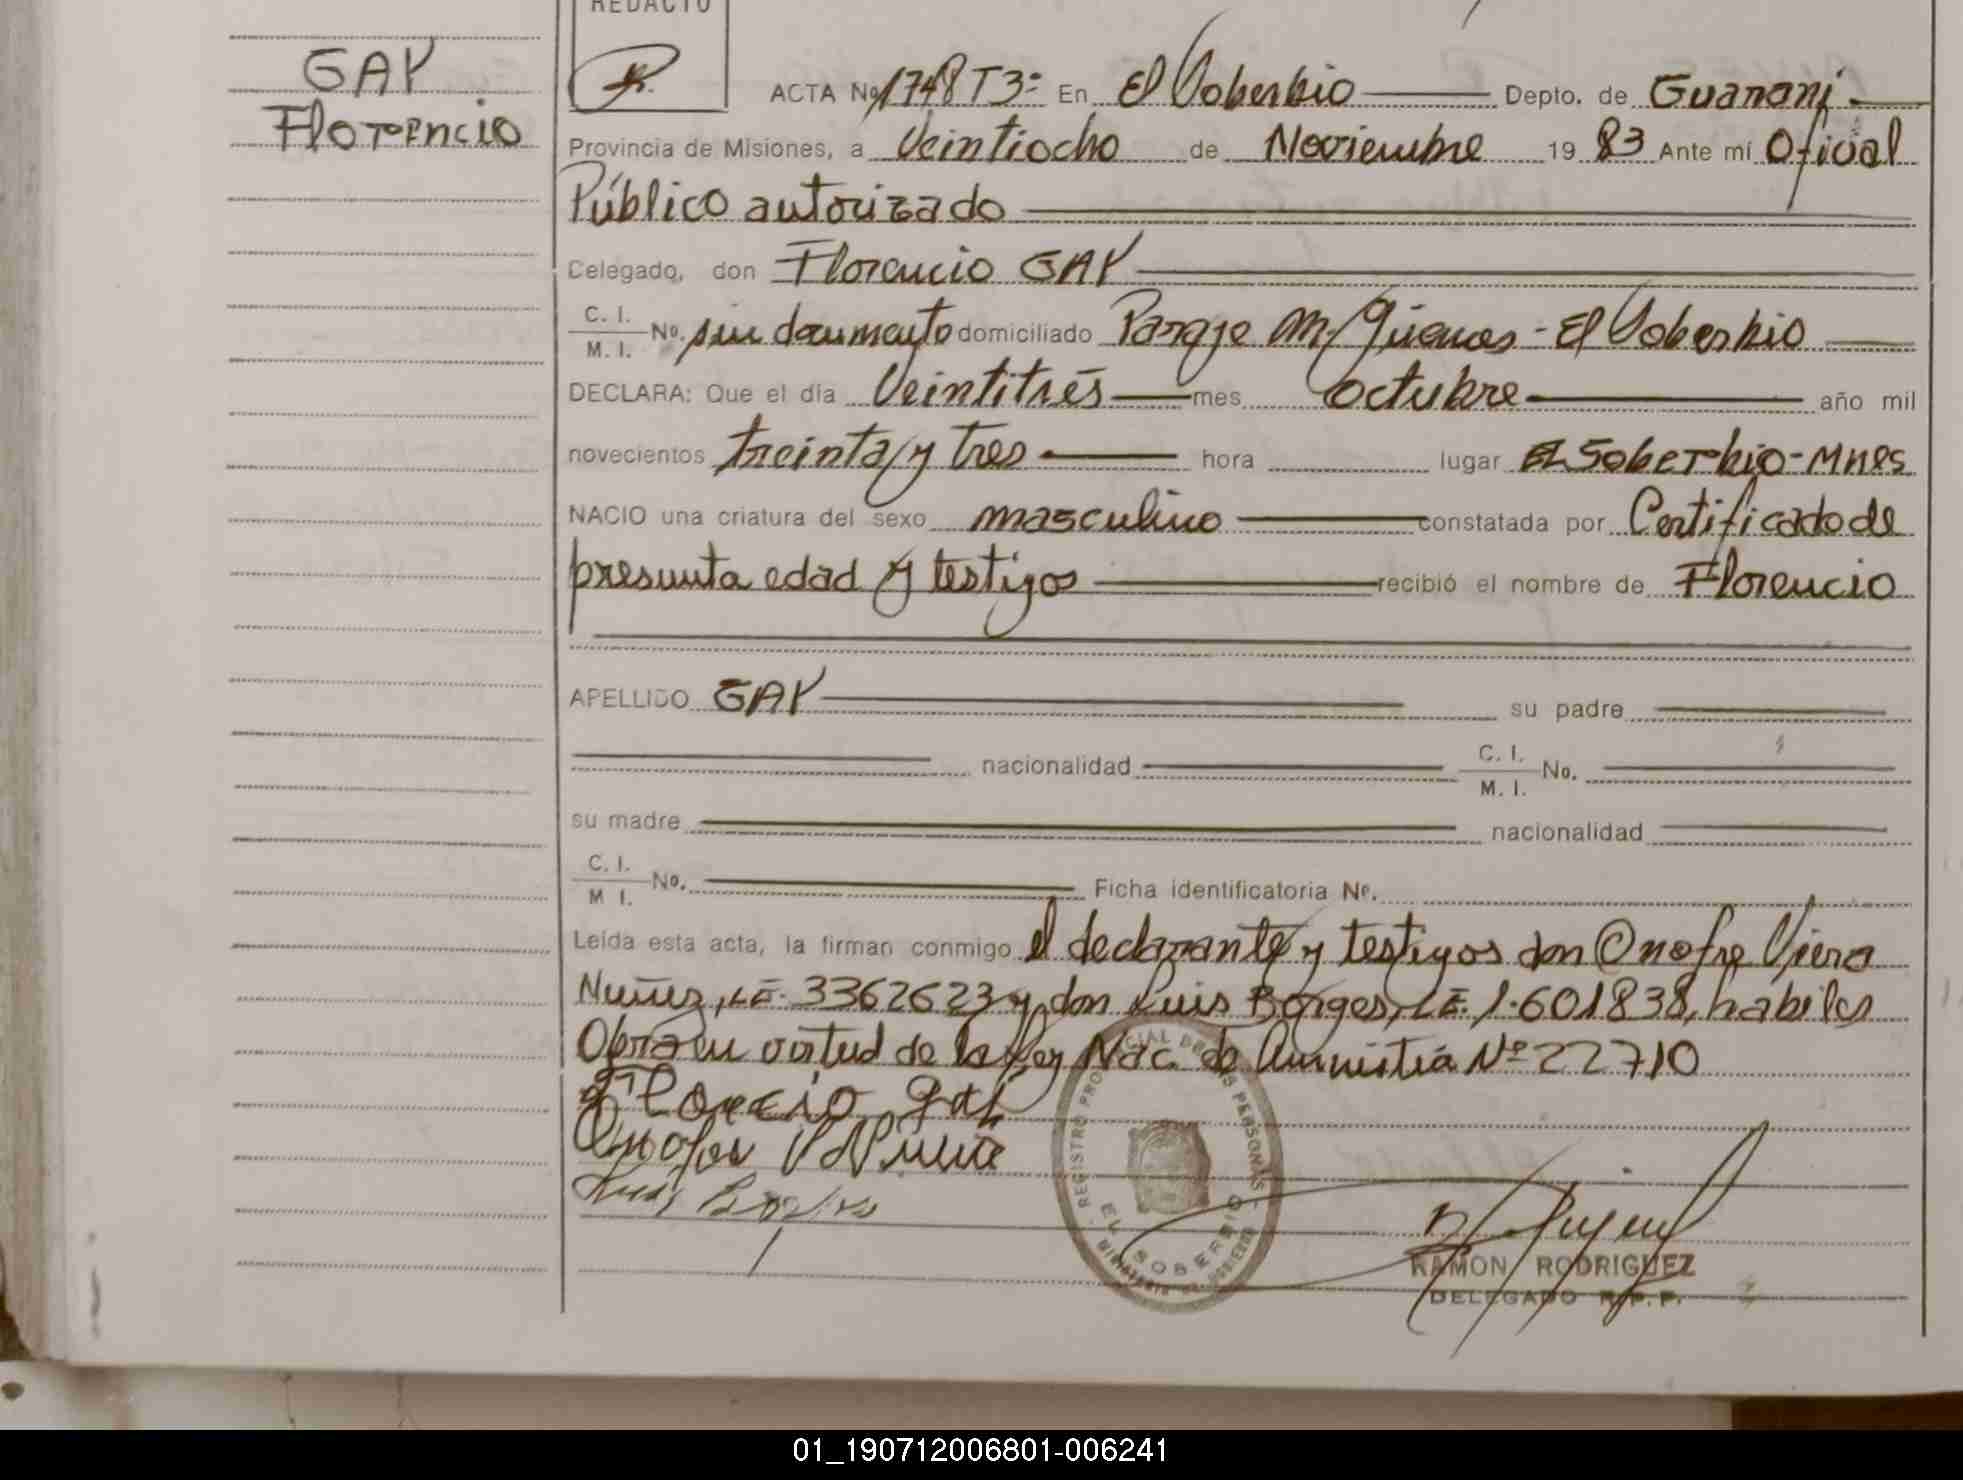 REDACTO
GAY
Florencio
ACTA No. 1748 T3º En El Soberbio Depto. de Guarani
Provincia de Misiones, a Veintiocho de Noviembre 19 83 Ante mí Oficial
Público autorizado
Celegado, don Florencio GAY
C. I.
M. I. No. sin documento domiciliado Paraje M/ Güenas - El Soberbio
DECLARA: Que el día Veintitrés mes octubre año mil
novecientos treinta y tres hora lugar EL Soberbio - Mnes
NACIO una criatura del sexo masculino constatada por Certificado de
presunta edad y testigos recibió el nombre de Florencio
APELLIDO GAY su padre
nacionalidad C. I. M. I. No.
su madre nacionalidad
C. I. M I. No. Ficha identificatoria Nº.
Leída esta acta, la firman conmigo el declarante y testigos don Onofre Viera
Nuñez, LE. 3362623 y don Luis Borges, LE. 1.601838, habiles
Obra en virtud de la Ley Nac. de Amnistia Nº 22710
Florecio gai
Luis Borges
REGISTRO PROVINCIAL DE LAS PERSONAS
EL SOBERBIO
MINISTERIO DE GOBIERNO
RAMON RODRIGUEZ
DELEGADO R.P.P.
01_190712006801-006241